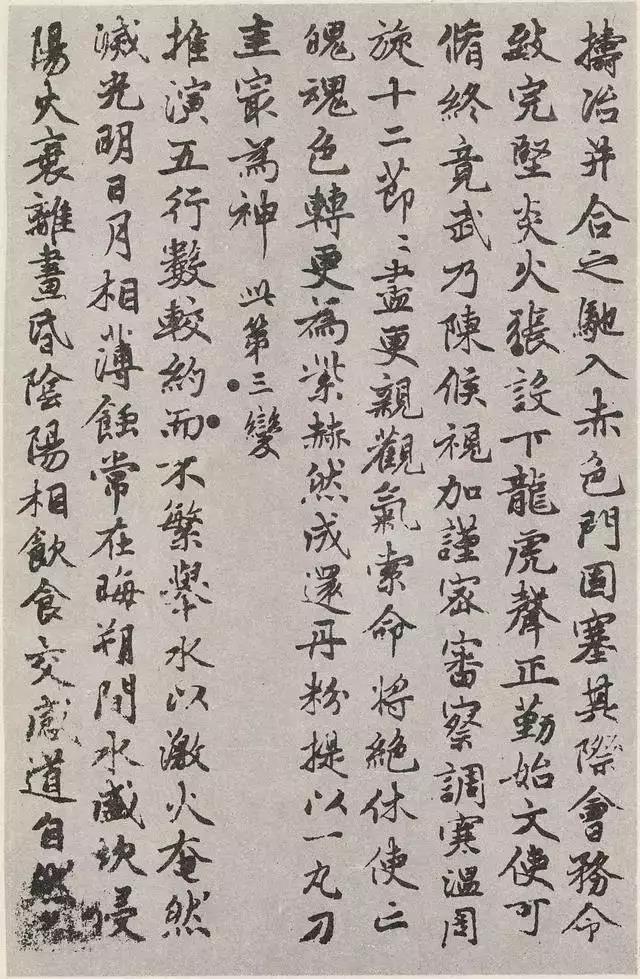 擣治并合之馳入赤色門固塞其際會務命
致完堅炎火張設下龍虎聲正勤始文使可
脩終竟武乃陳候視加謹密審察調寒溫周
旋十二節〻盡更親觀氣索命將絕休使亡
魄魂色轉更為紫赫然成還丹粉提以一丸刀
圭㝡為神 此第三變
推演五行數較約而不繁舉水以激火奄然
滅光明日月相薄蝕常在晦朔間水盛坎侵
陽火衰離晝昏陰陽相飲食交感道自然